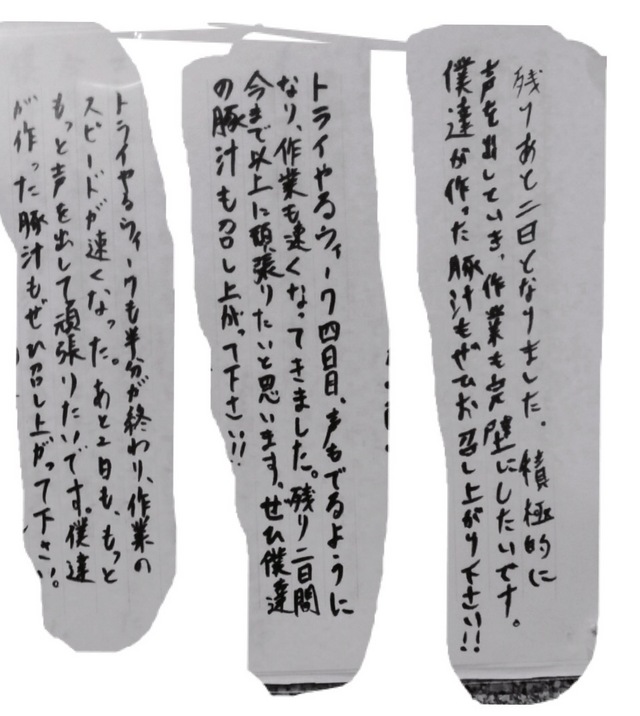 残りあと二日となりました。積極的に
声を出していき、作業も完壁にしたいです。
僕達が作った豚汁もぜひお召し上がり下さい!!
トライやるウィーク四日目、声もでるように
なり、作業も速くなってきました。残り二日間
今まで以上に頑張りたいと思います。ぜひ僕達
の豚汁も召し上がって下さい!!
トライやるウィークも半分が終わり、作業の
スピードが速くなった。あと2日も、もっと
もっと声を出して頑張りたいです。僕達
が作った豚汁もぜひ召し上がって下さい!。